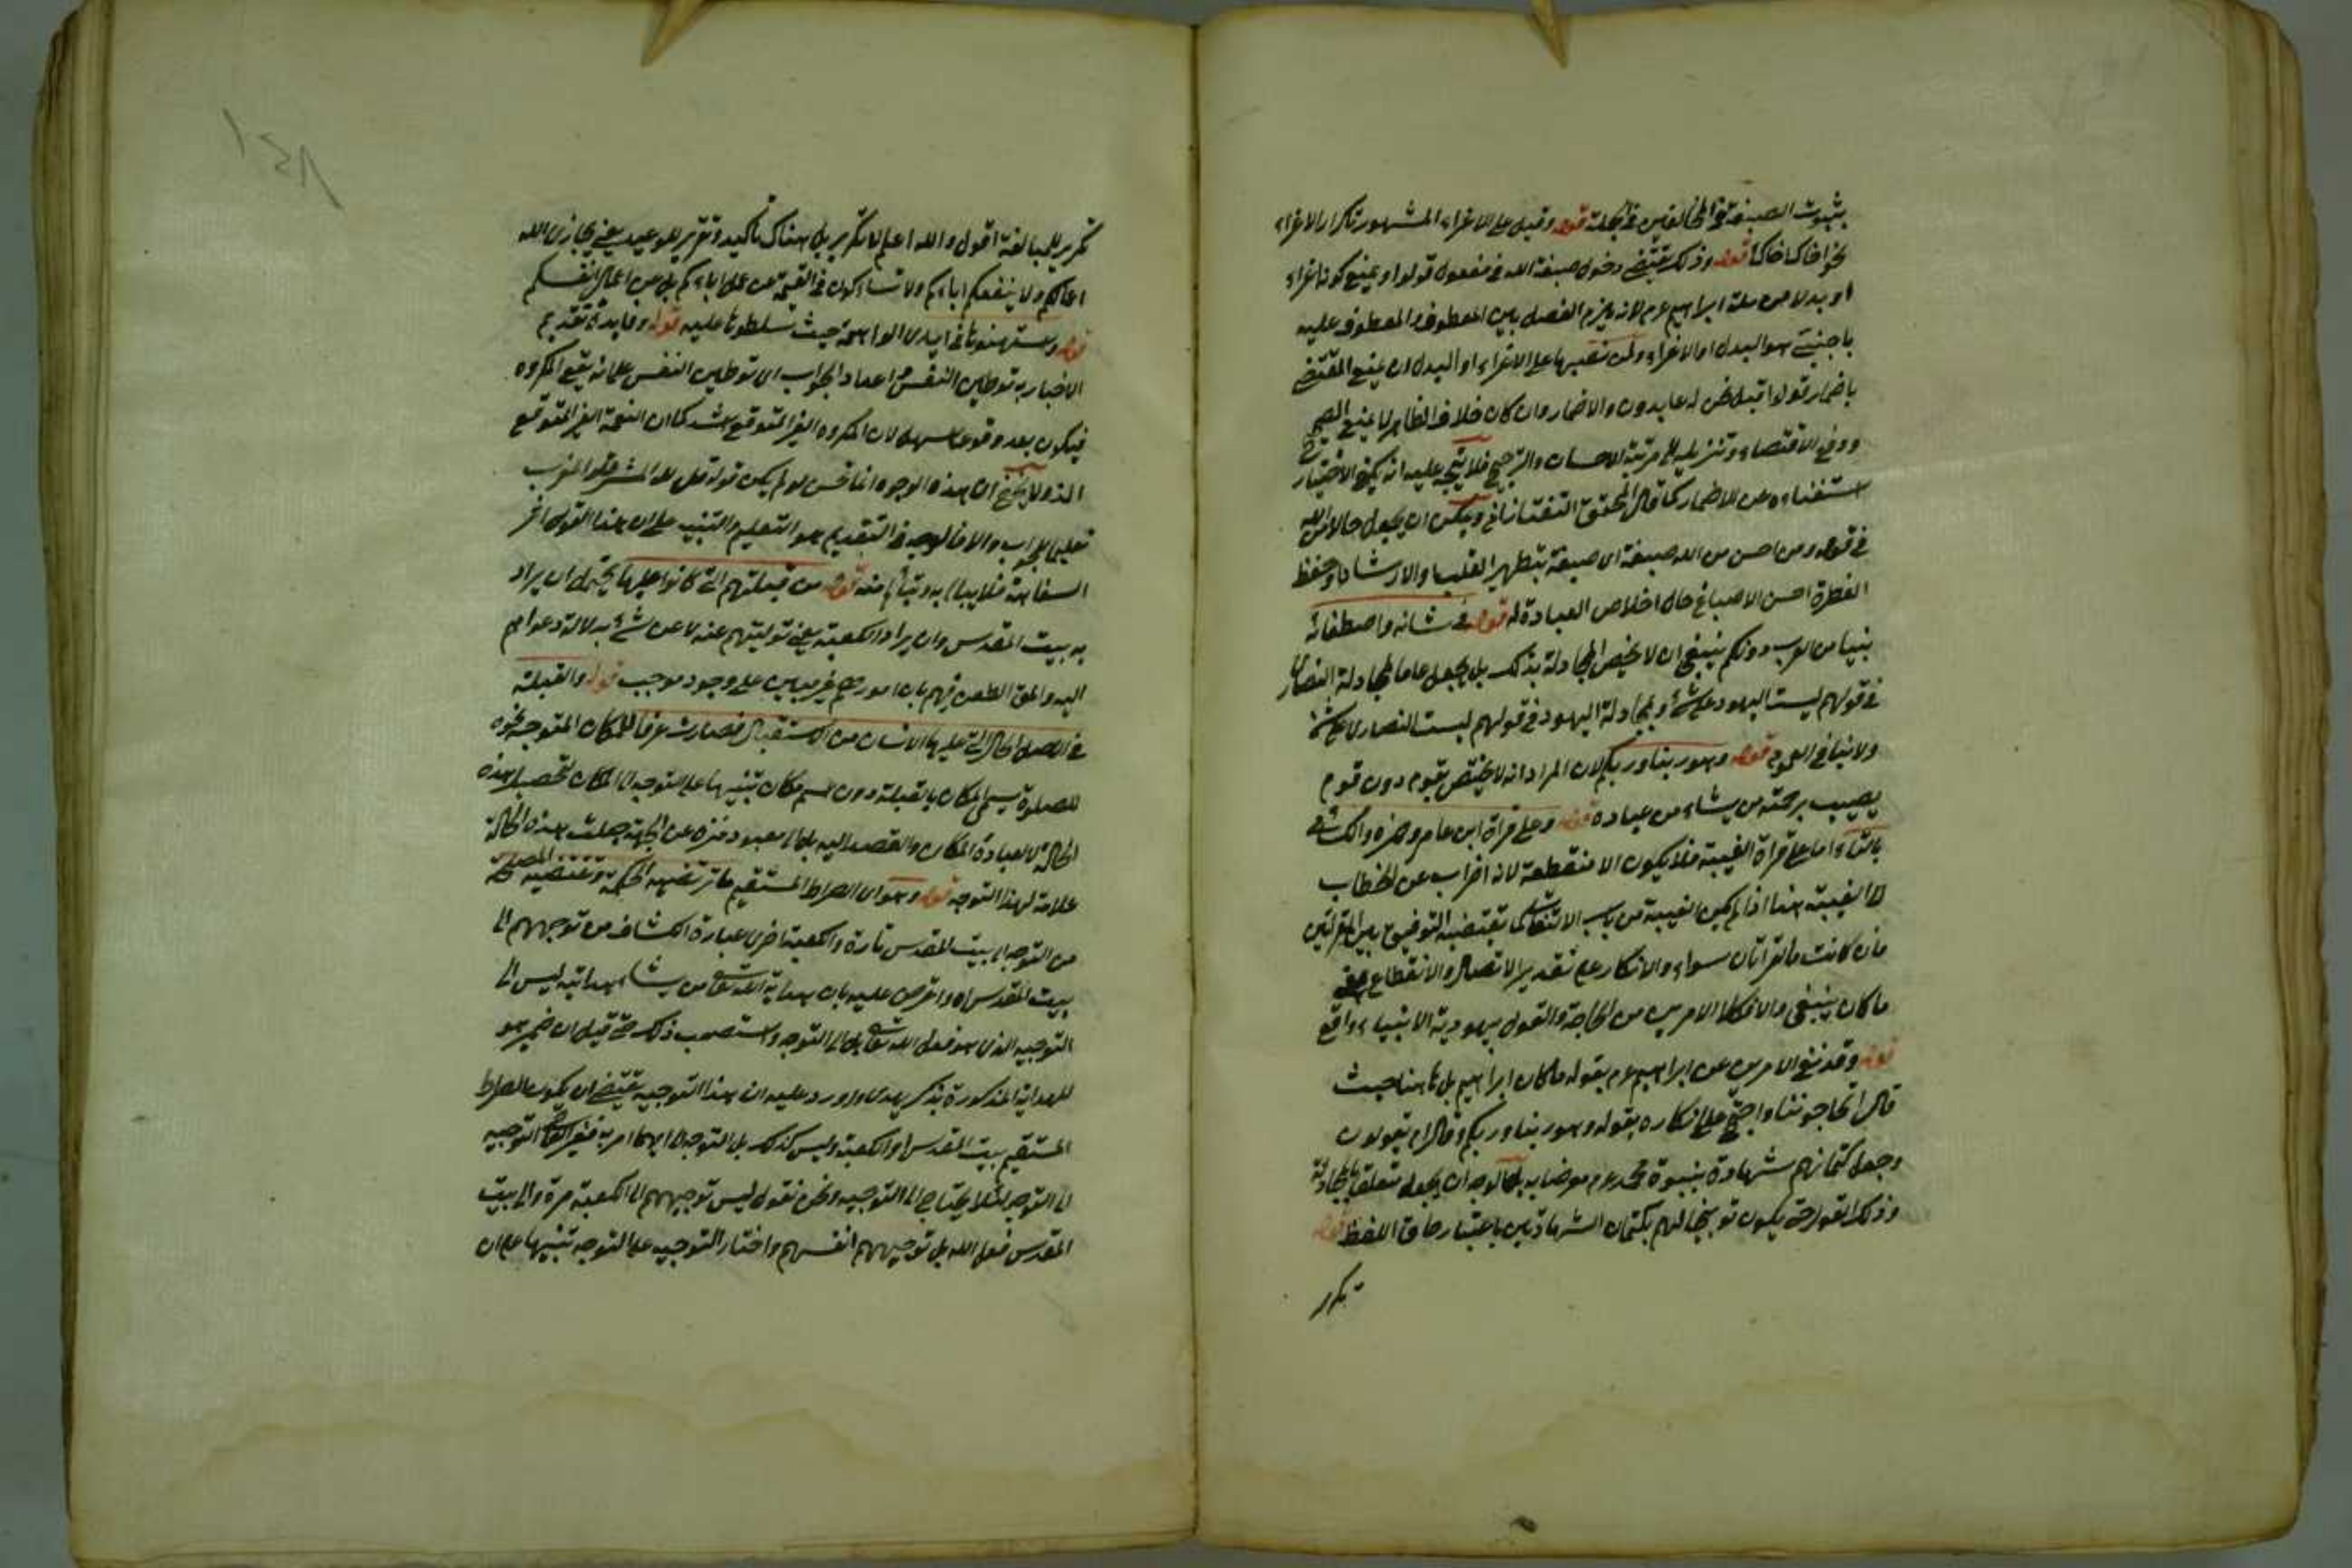 بثبوت الصبغة في المخالفين في الجملة قوله وقيل على الاغراء المشهور تكرار الاغراء
نحو اخاك اخاك قوله وذلك يقتضي دخول صبغة الله في مفعول قولوا ويمنع كونه اغراء
او بدلا من ملة ابراهيم عم لانه يلزم الفصل بين المعطوف والمعطوف عليه
باجنبي هو البدل او الاغراء ولمن نصبها على الاغراء او البدل ان يمنع المقتضي
باضمار قولوا قبل نحن له عابدون والاضمار وان كان خلاف الظاهر لا يمنع الصحة
ودفع الاقتضاء وتنزيله الى مرتبة الاحسان والترجيح فلا يتجه عليه انه يكفي الاختيار
استغناءه عن الاضمار كما قال المحقق التفتازاني ويمكن ان يجعل حالا من الله
في قوله ومن احسن من الله صبغة اى صبغة بتطهير القلب او الارشاد او حفظ
الفطرة احسن الاصباغ حال اخلاص العبادة له قوله في شانه واصطفائه
نبيا من العرب دونكم ينبغي ان لا يخص المجادلة بذلك بل يجعل عاما لمجادلة النصارى
في قولهم ليست اليهود على شئ ومجادلة اليهود في قولهم ليست النصارى على شئ
ولا ينافي العموم قوله وهو ربنا وربكم لان المراد انه لا يختص بقوم دون قوم
يصيب برحمته من يشاء من عباده قوله وعلى قراءة ابن عامر وحمزة والكسائي
بالتاء اما على قراءة الغيبة فلا يكون الا منقطعة لانه اضراب عن الخطاب
الى الغيبة هذا اذا لم يكن الغيبة من باب الالتفات كما يقتضيه التوفيق بين القراءتين
فان كانت فالقراءتان سواء والانكار على تقدير الاتصال والانقطاع بمعنى
ما كان ينبغي والا فكلا الامرين من المحاجة والقول بيهودية الانبياء واقع
قوله وقد نفى الامرين عن ابراهيم عم بقوله ما كان ابراهيم بل ههنا حيث
قال اتحاجوننا واحتج على انكاره بقوله وهو ربنا وربكم وقال ام يقولون
وجعل كتمانهم شهادة بنبوة محمد عم معرضا به بل الاوجه ان يجعل متعلقا بالمجادلة
وذلك القول حتى يكون توبيخا لهم بكتمان الشهادتين باعتبار حاق اللفظ قوله
تكرير
تكرير للمبالغة اقول والله اعلم لا تكرير بل هناك تأكيد وتقرير للوعيد يعني يجازى الله
اعمالكم ولا ينفعكم اباءكم ولا تسألون في القيمة عن عمل اباءكم بل عن اعمال انفسكم
قوله واستمهنوها في ايدى الواهمة حيث سلطوها عليه قوله وفايدة تقديم
الاخبار به توطين النفس واعداد الجواب اى توطين النفس على انه يقع المكروه
فيكون بعد وقوعه سهلا لان المكروه الغير المتوقع اشد كما ان النعمة الغير المتوقع
الذ ولا يخفى ان هذه الوجوه انما تحسن لو لم يكن قوله قل لله المشرق والمغرب
تعليما للجواب والا فالوجه في التقديم هو التعليم والتنبيه على ان هذا القول اثر
السفاهة فلا يبالى به ويتألم منه قوله من قبلتهم التي كانوا عليها يحتمل ان يراد
به بيت المقدس وان يراد الكعبة يعني توليتهم عنه لا عن شئ بدلالة دعواهم
اليه والحق الطعن فيهم بان امورهم غير مبنى على وجود موجب قوله والقبلة
في الاصل الحال التي عليها الانسان من الاستقبال فصارت عرفا للمكان المتوجه نحوه
للصلوة يسمى المكان بالقبلة دون اسم مكان تنبيها على التوجه الى المكان لتحصيل هذه
الحالة لا لعبادة المكان والقصد اليه بل الى معبود منزه عن الجهة جعلت هذه الحالة
علامة لهذا التوجه قوله وهو اى الصراط المستقيم ما ترتضيه الحكمة وتقتضيه المصلحة
من التوجه الى بيت المقدس تارة والكعبة اخرى عبارة الكشاف من توجههم الى
بيت المقدس اه واعترض عليه بان هداية الله تعالى من يشاء هدايته ليس الى
التوجيه الذى هو فعل الله تعالى بل الى التوجه واستصعب ذلك حتى قيل ان ضمير هو
للهداية المذكورة بذكر يهدى واورد عليه ان هذا التوجيه يقتضي ان يكون الصراط
المستقيم بيت المقدس او الكعبة وليس كذلك بل التوجه الى ايهما امر به فغير القاضي التوجيه
الى التوجه لئلا يحتاج الى التوجيه ونحن نقول ليس توجيههم الى الكعبة مرة والى بيت
المقدس فعل الله بل توجيههم انفسهم واختار التوجيه على التوجه تنبيها على ان